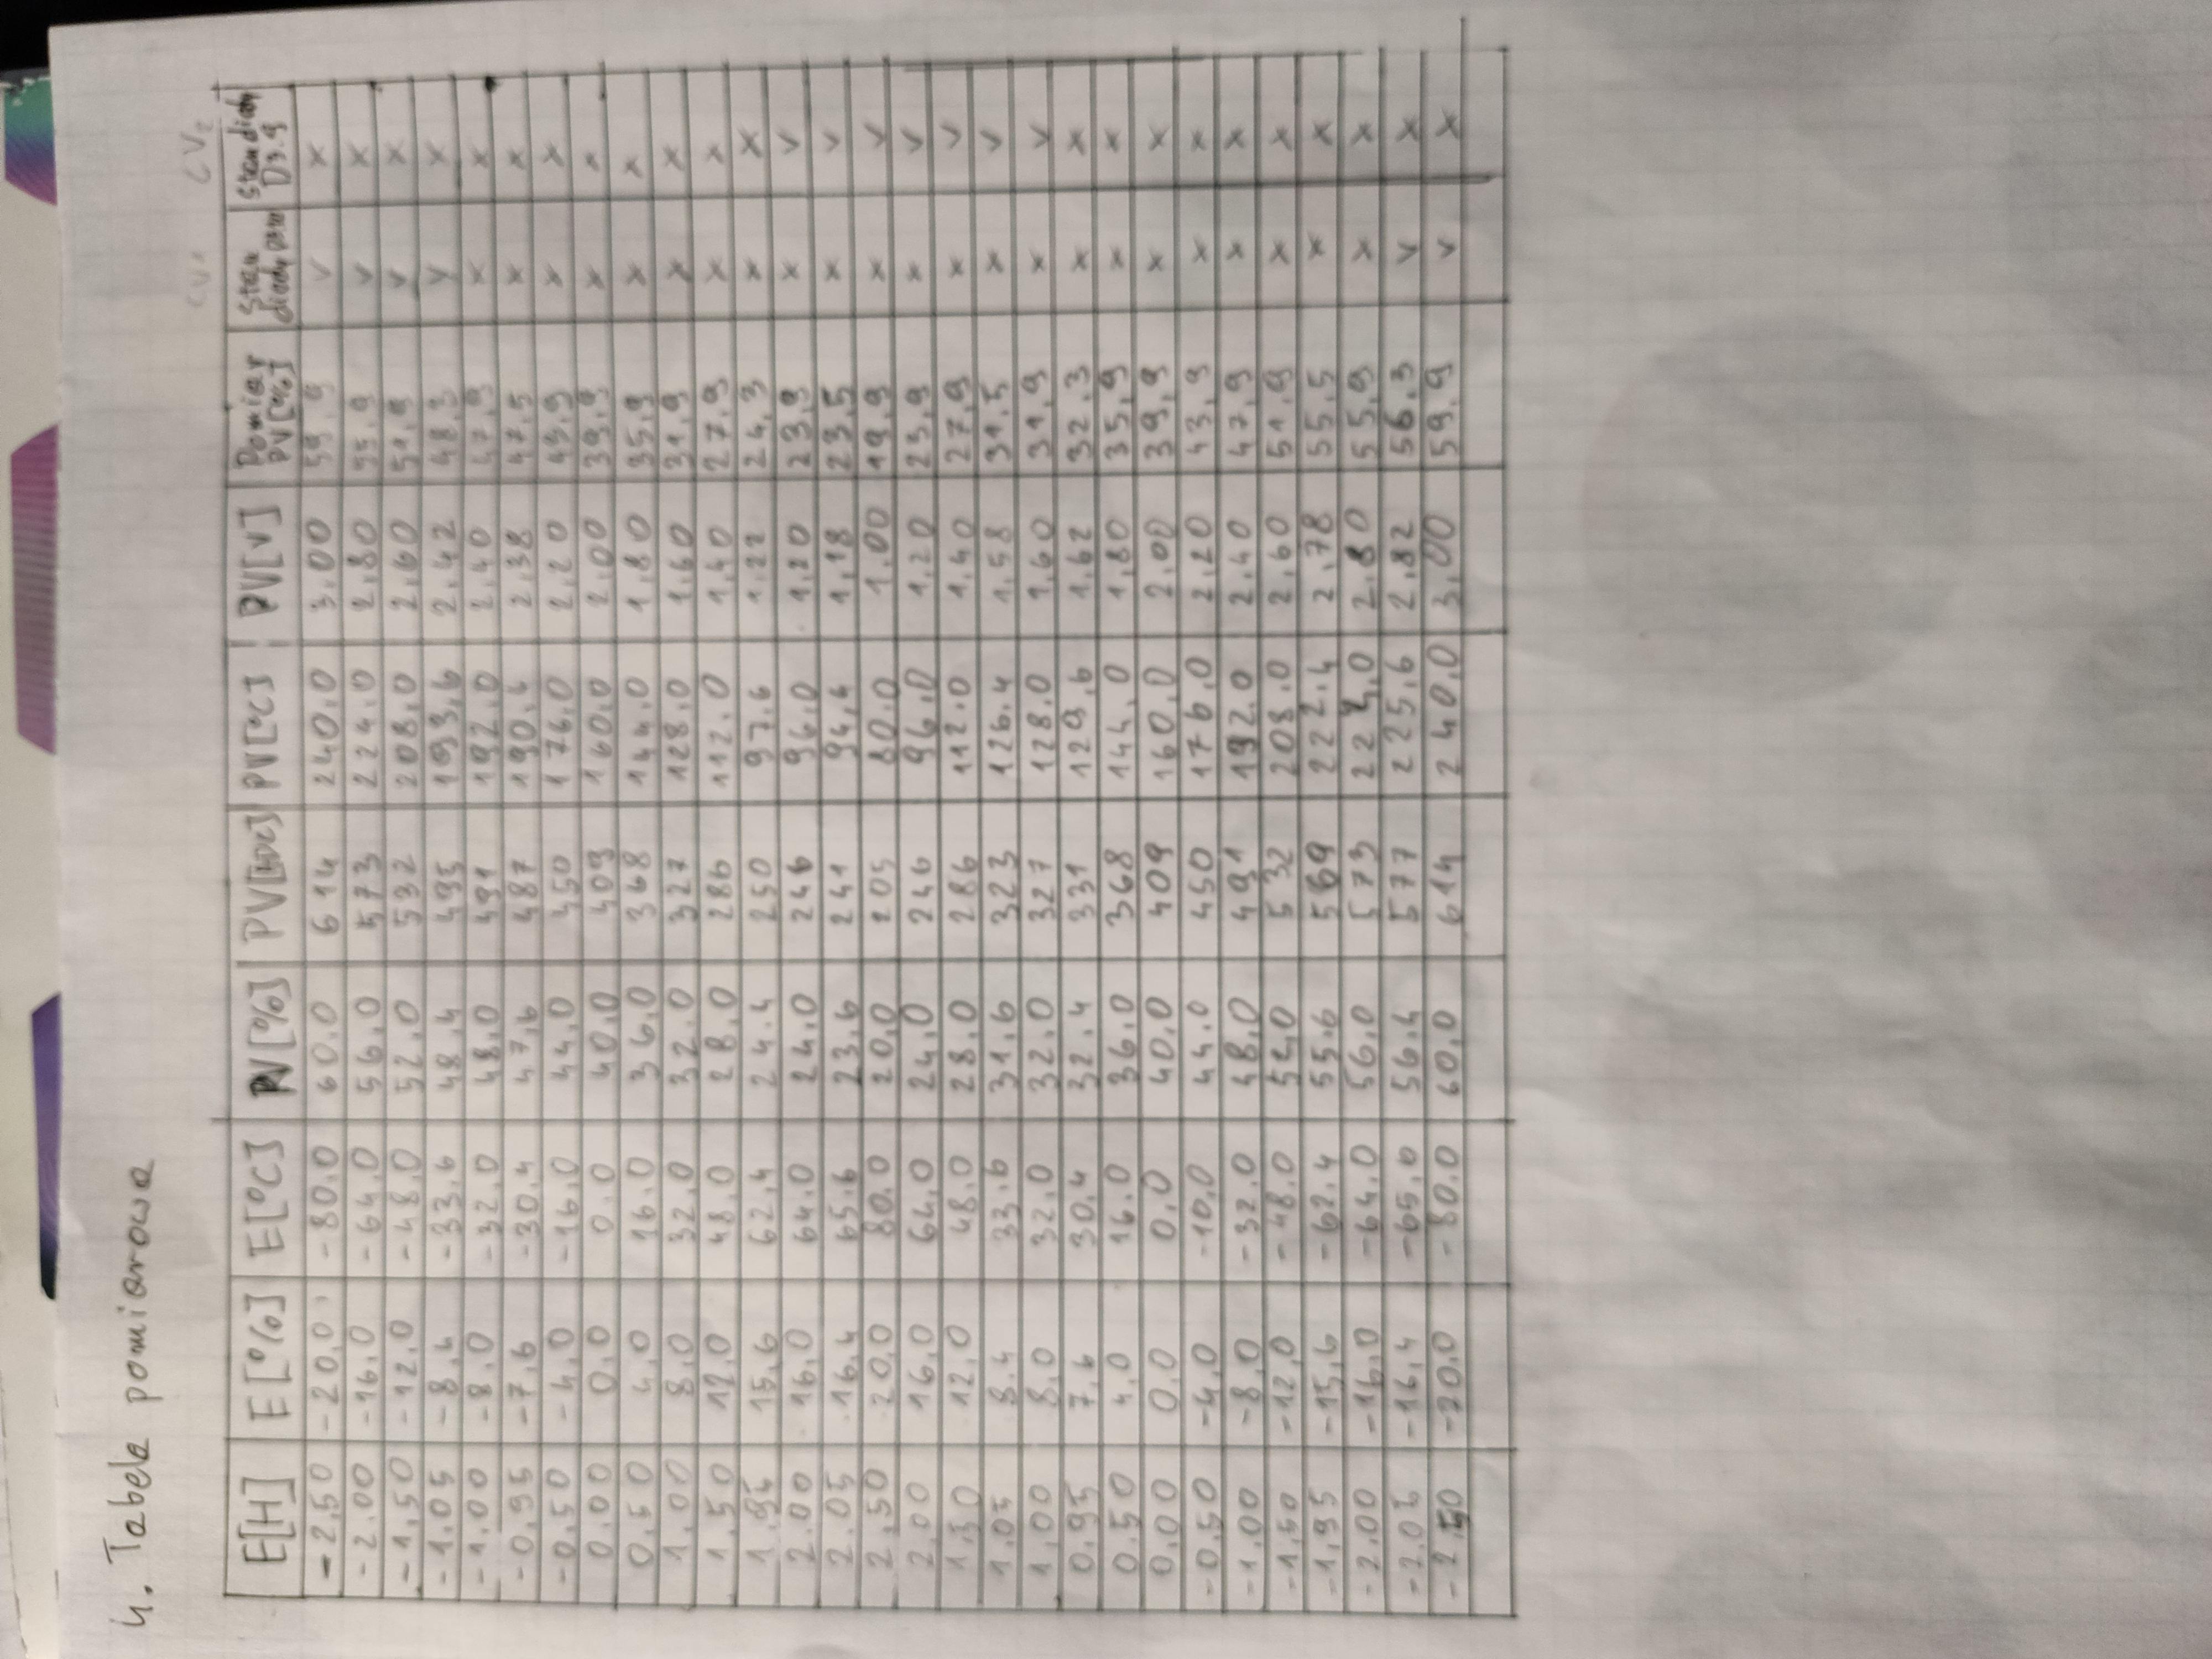 4. Tabela pomiarowa
CV1 CV2
E[H] E[%] E[°C] PV[%] PV[ADC] PV[°C] PV[V] Pomiar PV[%] Stan diody D3.10 Stan diody D3.9
-2,50 -20,0 -80.0 60.0 614 240.0 3.00 59,9 v x
-2.00 -16.0 -64,0 56,0 573 224.0 2,80 55,9 v x
-1,50 -12,0 -48,0 52,0 532 208,0 2,60 51,9 v x
-1.05 -8,4 -33,6 48,4 495 193,6 2,42 48,3 v x
-1,00 -8,0 -32,0 48,0 491 192,0 2,40 47,9 x x
-0,95 -7,6 -30,4 47,6 487 190,4 2,38 47,5 x x
-0,50 -4,0 -16,0 44,0 450 176,0 2,20 43,9 x x
0,00 0,0 0.0 40,0 409 160,0 2,00 39,9 x x
0,50 4,0 16.0 36,0 368 144.0 1,80 35,9 x x
1,00 8,0 32,0 32.0 327 128,0 1,60 31,9 x x
1,50 12,0 48,0 28,0 286 112.0 1,40 27,9 x x
1,95 15,6 62,4 24.4 250 97.6 1,22 24,3 x x
2.00 16,0 64.0 24.0 246 96,0 1,20 23,9 x v
2.05 16,4 65.6 23,6 241 94,4 1,18 23,5 x v
2,50 20,0 80.0 20,0 205 80.0 1.00 19,9 x v
2,00 16,0 64,0 24,0 246 96,0 1.20 23,9 x v
1,50 12,0 48.0 28.0 286 112.0 1,40 27,9 x v
1,05 8.4 33.6 31,6 323 126.4 1,58 31.5 x v
1,00 8,0 32,0 32.0 327 128.0 1,60 31,9 x v
0,95 7,6 30,4 32.4 331 129,6 1,62 32.3 x x
0.50 4,0 16.0 36,0 368 144,0 1,80 35,9 x x
0,00 0,0 0,0 40,0 409 160,0 2,00 39,9 x x
-0,50 -4,0 -10,0 44.0 450 176,0 2,20 43,9 x x
-1.00 -8,0 -32.0 48,0 491 192.0 2.40 47,9 x x
-1,50 -12,0 -48.0 52,0 532 208.0 2,60 51,9 x x
-1,95 -15,6 -62.4 55.6 569 222.4 2,78 55,5 x x
-2.00 -16,0 -64.0 56,0 573 224,0 2.80 55,9 x x
-2,05 -16,4 -65,6 56.4 577 225,6 2,82 56.3 v x
-2,50 -20.0 -80.0 60,0 614 240,0 3,00 59.9 v x